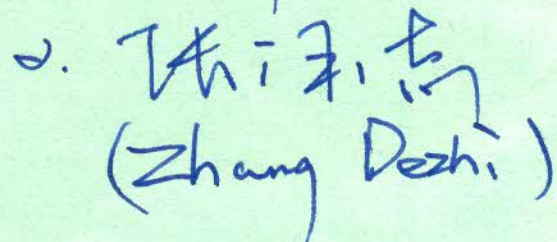 2. 张泽志
(Zhang Dezhi)